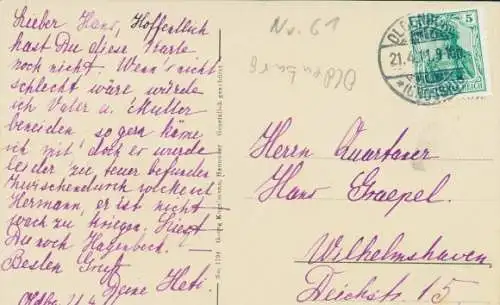 Lieber Hans, Hoffentlich
hast Du diese Karte
noch nicht. Wenn's nicht
schlecht wäre würde
ich Vater u. Mutter
beneiden so gern käme
ich mit, doch er wurde
leider zu teuer befunden
Hermann, er ist nicht
wach zu kriegen. Siegt
Du noch Hagenbeck.
Besten Gruß
Deine Heti.
Oldbg. 21.4.
No. 1794 Georg Kugelmann, Hannover Gesetzlich geschützt
Nr. 61
Oldenburg
OLDENBURG
21.4.11. 9
5
REICH
Herrn Quartaner
Hans Graepel.
Wilhelmshaven
Deichstr 15